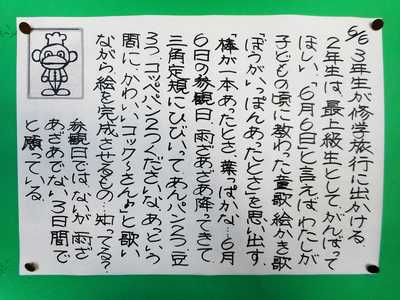 6/6 3年生が修学旅行に出かける。
2年生は、最上級生として、がんばって
ほしい。「6月6日」と言えば、わたしが
子どもの頃に教わった童歌・絵かき歌
「ぼうがいっぽんあったとさ」を思い出す。
「棒が一本あったとさ、葉っぱかな…6月
6日の参観日、雨ざあざあ降ってきて、
三角定規にひびいって、あんパン2つ、豆
3つ、コッペパン2つくださいな、あっという
間に、かわいいコックーさん♪」と歌い
ながら絵を完成させるもの。知ってる？
参観日では、ないが、雨ざ
あざあでない3日間で
と願っている。